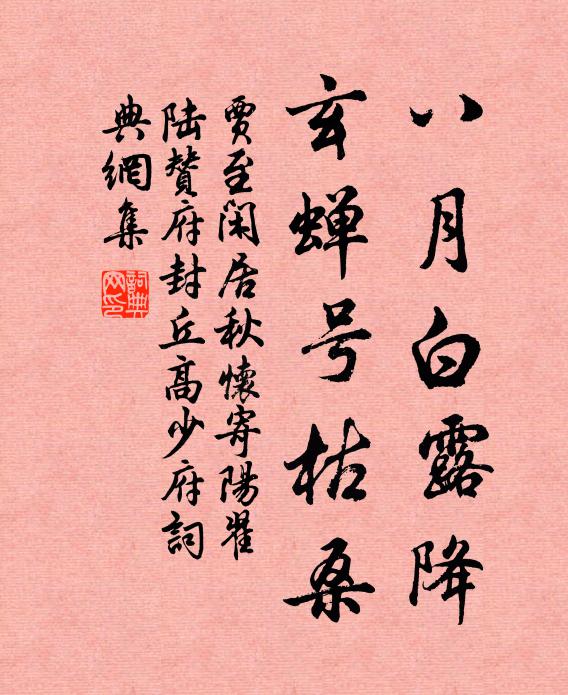 八月白露降
玄蝉号枯桑
賈至閑居秋懷寄陽翟
陆贊府封丘高少府詞
典網集
詞典网印